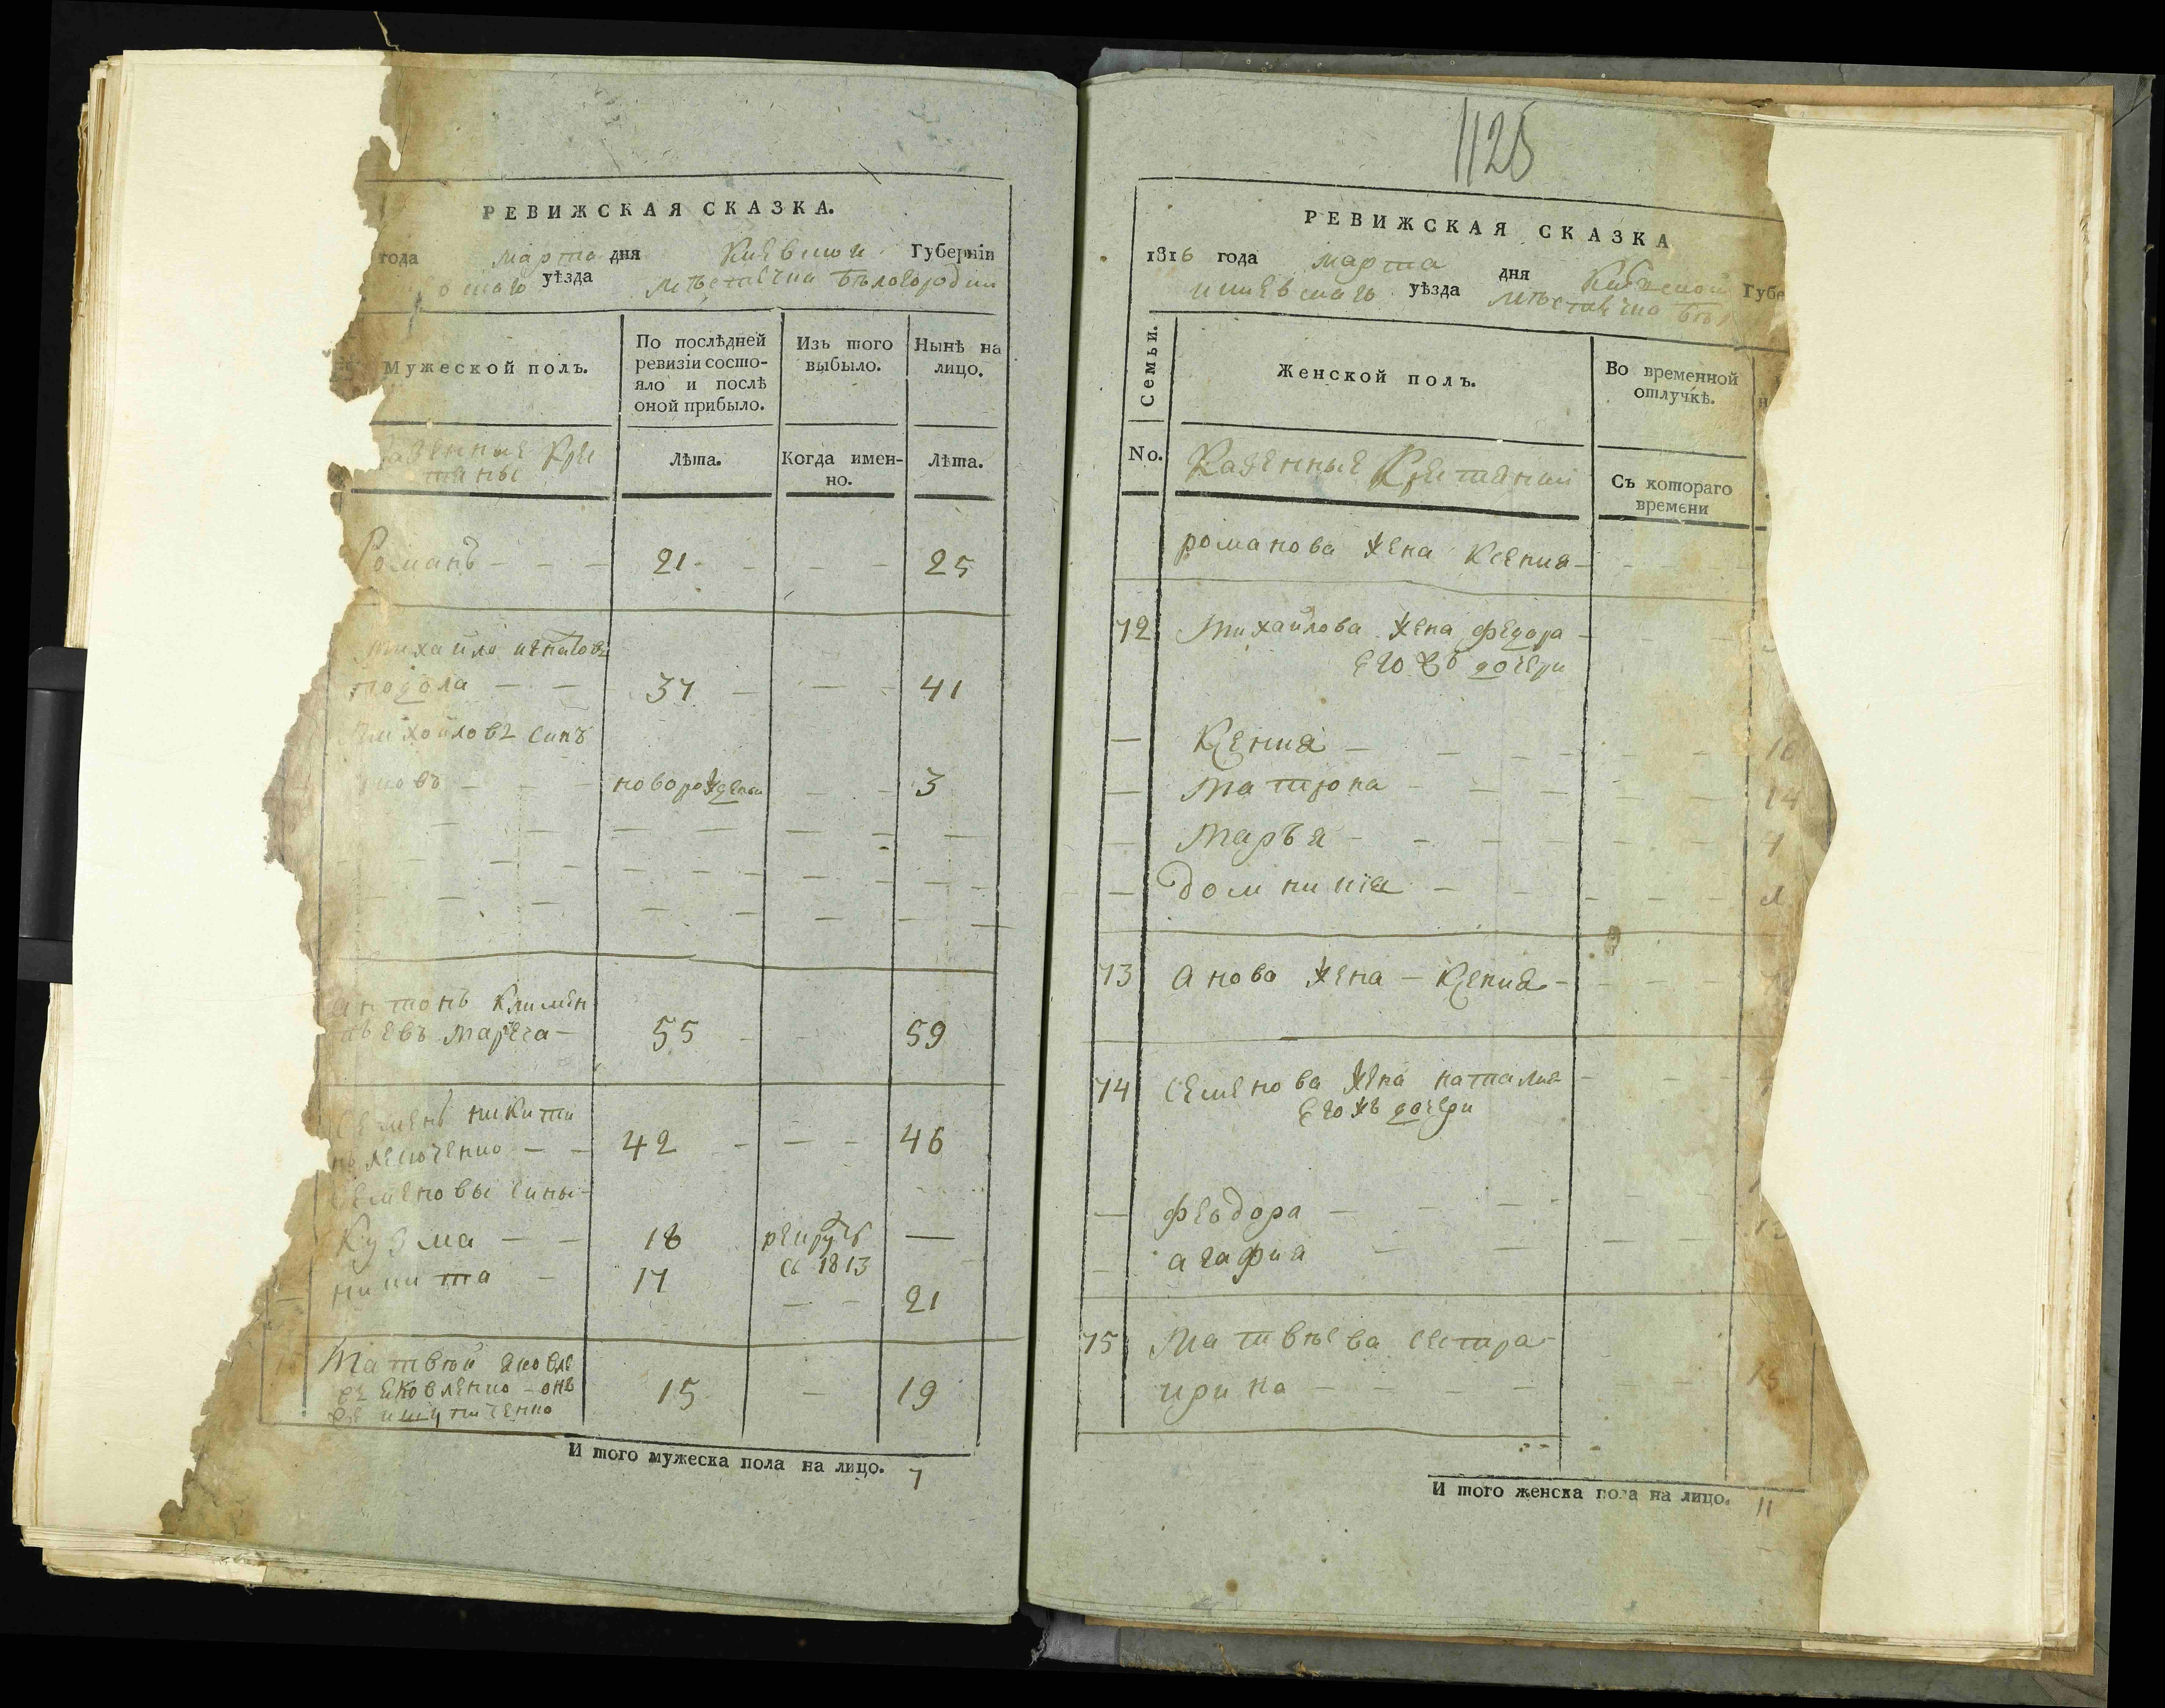 РЕВИЖСКАЯ СКАЗКА.
года марта дня Киевской Губернїи
уѣзда мѣстечка бѣлогородки
Мужеской полъ.
По послѣдней
ревизїи состо-
яло и послѣ
оной прибыло.
Изъ того
выбыло.
Нынѣ на
лицо.
Казенные Кре
стяне
Лѣта.
Когда имен-
но.
Лѣта.
Романъ - - - 21 - - - - 25
Михайло игнатовъ
подола - - 37 - - - 41
Михайловъ синъ
новорожденъ - - 3
антонъ климен
тьевъ - 55 - - 59
Семенъ никити
- - 42 - - - 46
Семеновы сины -
Кузма - - 18 рекрутъ —
съ 1813
никита - 17 - - 21
Матвѣй яковле
въ яковленко - онъ
15 - 19
И того мужеска пола на лицо. 7
1128
РЕВИЖСКАЯ СКАЗКА
1816 года марта дня Киевской Губе
киевскаго уѣзда мѣстечка бѣл
Семьи.
Женской полъ.
Во временной
отлучкѣ.
No.
Казенные Крестянки
Съ котораго
времени
романова жена Ксения -
72 михайлова жена федора -
его жъ дочери
— Ксения — 16
— Матрона - 14
— Марья -
— Домникия -
73 жена - Ксения -
74 Семенова жена наталия -
его жъ дочери
— феодора —
- агафия — 13
75 Матвѣева сестра -
ирина - - - - 15
И того женска пола на лицо. 11